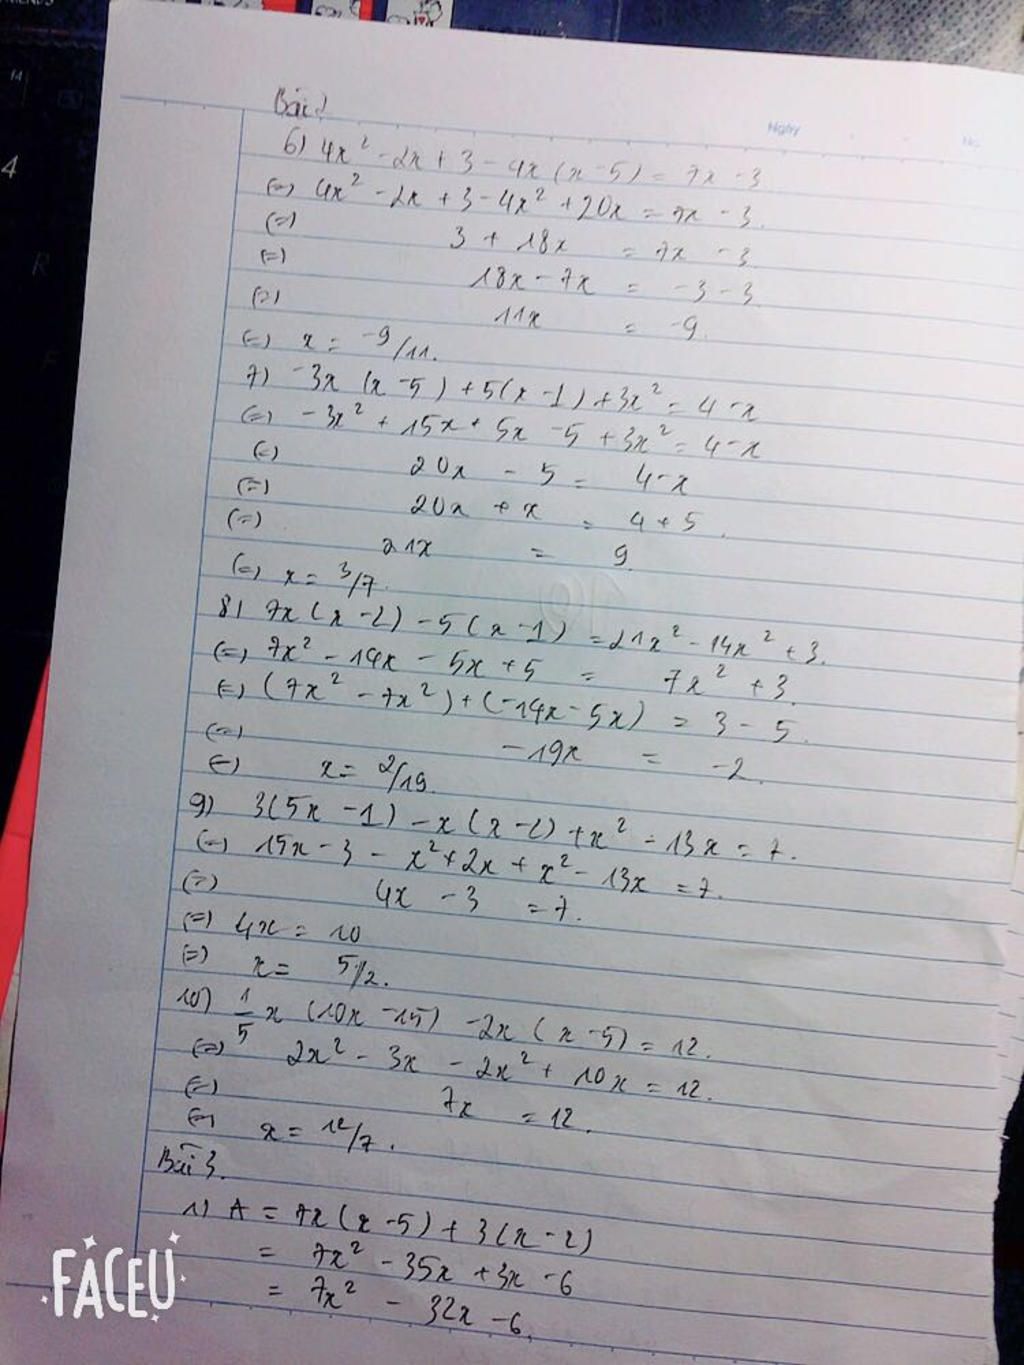 Ngày
No.
4
Bài 2
6) 4x² - 2x + 3 - 4x (x - 5) = 7x - 3
(=) 4x² - 2x + 3 - 4x² + 20x = 7x - 3.
(=) 3 + 18x = 7x - 3.
(=) 18x - 7x = -3 - 3
(=) 11x = -9.
(=) x = -9/11.
7) -3x (x - 5) + 5(x - 1) + 3x² = 4 - x
(=) -3x² + 15x + 5x - 5 + 3x² = 4 - x
(=) 20x - 5 = 4 - x
(=) 20x + x = 4 + 5.
(=) 21x = 9
(=) x = 3/7.
8) 7x (x - 2) - 5 (x - 1) = 21x² - 14x² + 3.
(=) 7x² - 14x - 5x + 5 = 7x² + 3.
(=) (7x² - 7x²) + (-14x - 5x) = 3 - 5.
(=) -19x = -2.
(=) x = 2/19.
9) 3(5x - 1) - x (x - 2) + x² - 13x = 7.
(=) 15x - 3 - x² + 2x + x² - 13x = 7.
(=) 4x - 3 = 7.
(=) 4x = 10
(=) x = 5/2.
10) 1/5 x (10x - 15) - 2x (x - 5) = 12.
(=) 2x² - 3x - 2x² + 10x = 12.
(=) 7x = 12.
(=) x = 12/7.
Bài 3.
1) A = 7x (x - 5) + 3 (x - 2)
= 7x² - 35x + 3x - 6
= 7x² - 32x - 6.
FACEU